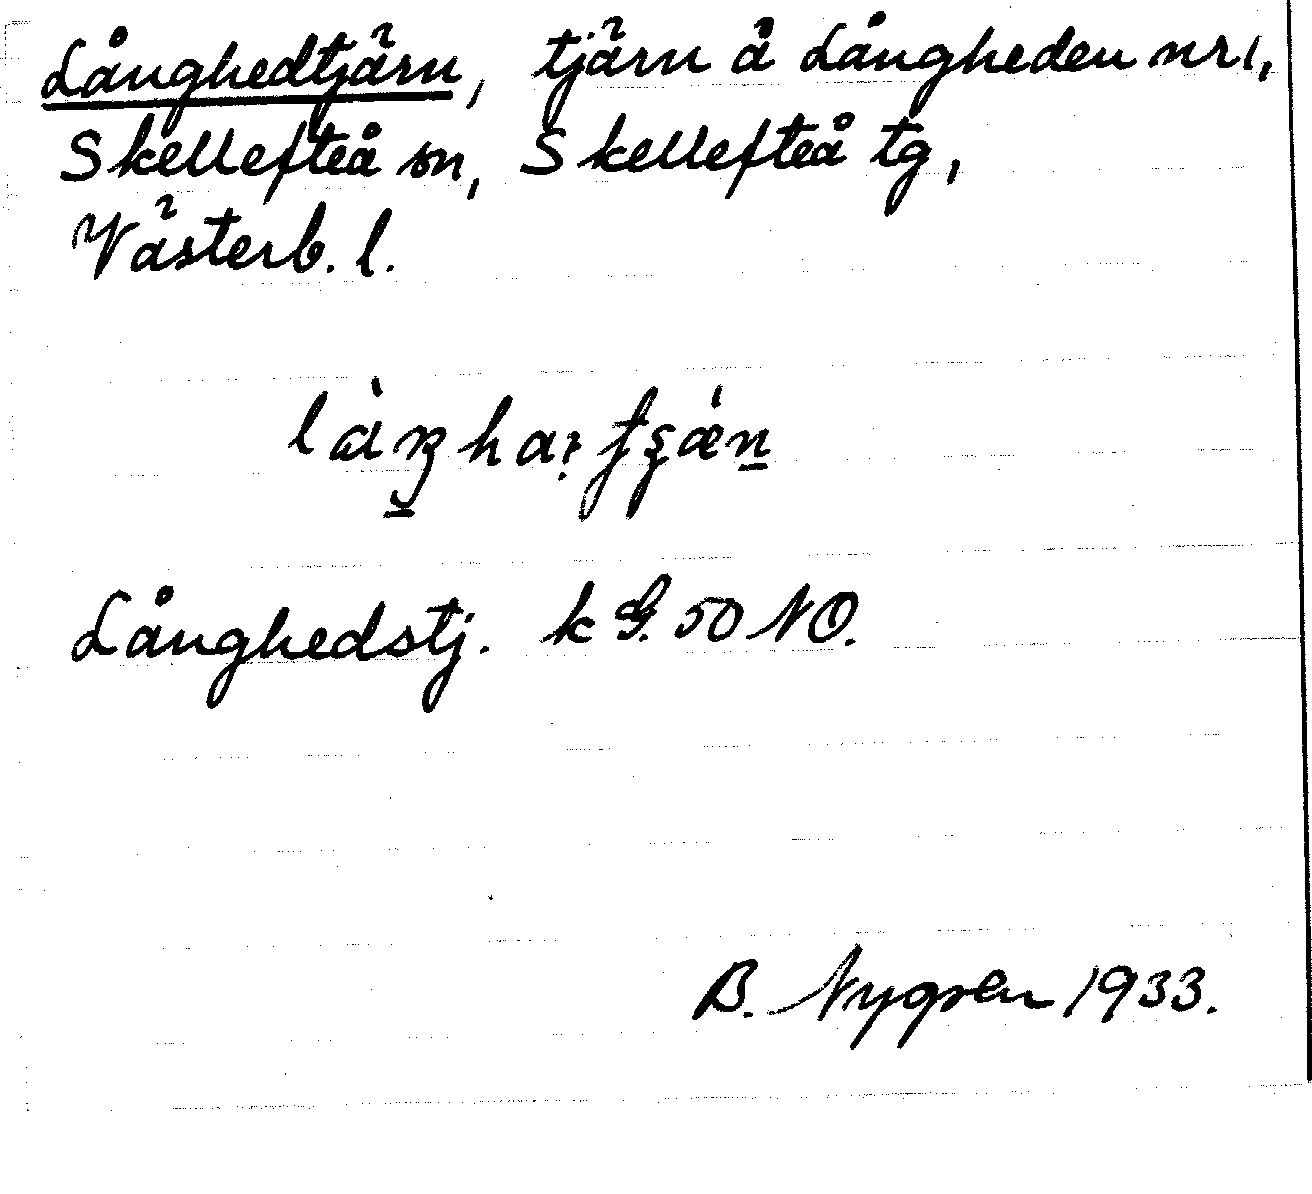 Långhedtjärn, tjärn å Långheden nr 1,
Skellefteå sn, Skellefteå tg,
Västerb. l.
Långhedstj. k G. 50 NO.
B. Nygren 1933.